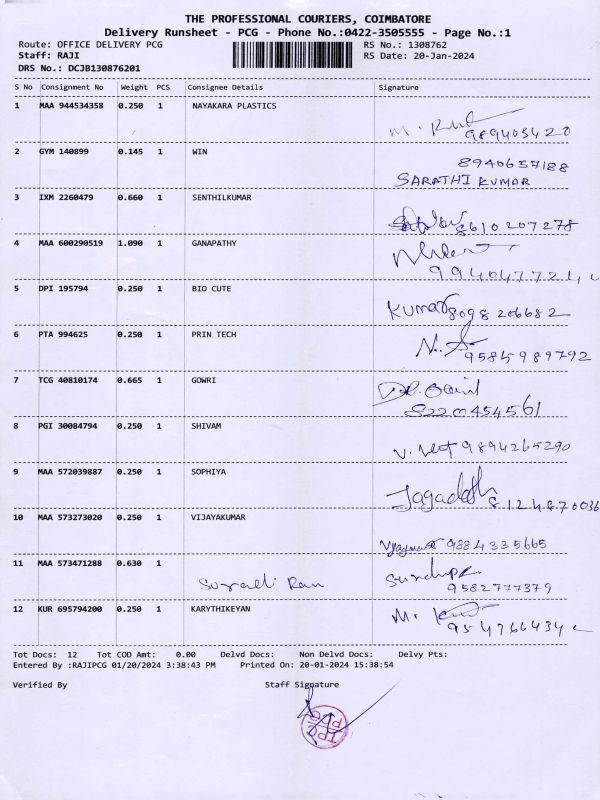 THE PROFESSIONAL COURIERS, COIMBATORE
Delivery Runsheet - PCG - Phone No.:0422-3505555 - Page No.:1
Route: OFFICE DELIVERY PCG RS No.: 1308762
Staff: RAJI RS Date: 20-Jan-2024
DRS No.: DCJB130876201
S No Consignment No Weight PCS Consignee Details Signature
1 MAA 944534358 0.250 1 NAYAKARA PLASTICS
M.
989403420
2 GYM 140899 0.145 1 WIN 8940657188
SARATHI KUMAR
3 IXM 2260479 0.660 1 SENTHILKUMAR
8610207278
4 MAA 600290519 1.090 1 GANAPATHY
994047721
5 DPI 195794 0.250 1 BIO CUTE
Kumar 8098206682
6 PTA 994625 0.250 1 PRIN TECH
9585989792
7 TCG 40810174 0.665 1 GOWRI
8220454561
8 PGI 30084794 0.250 1 SHIVAM
V. 9894265290
9 MAA 572039887 0.250 1 SOPHIYA
Jagadesh 8124870036
10 MAA 573273020 0.250 1 VIJAYAKUMAR
9884335665
11 MAA 573471288 0.630 1
9582777379
12 KUR 695794200 0.250 1 KARYTHIKEYAN
M.
Tot Docs: 12 Tot COD Amt: 0.00 Delvd Docs: Non Delvd Docs: Delvy Pts:
Entered By :RAJIPCG 01/20/2024 3:38:43 PM Printed On: 20-01-2024 15:38:54
Verified By Staff Signature